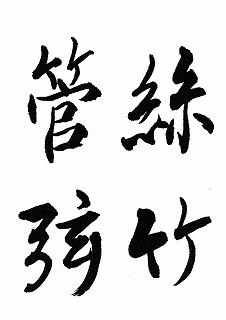 絲竹
管弦